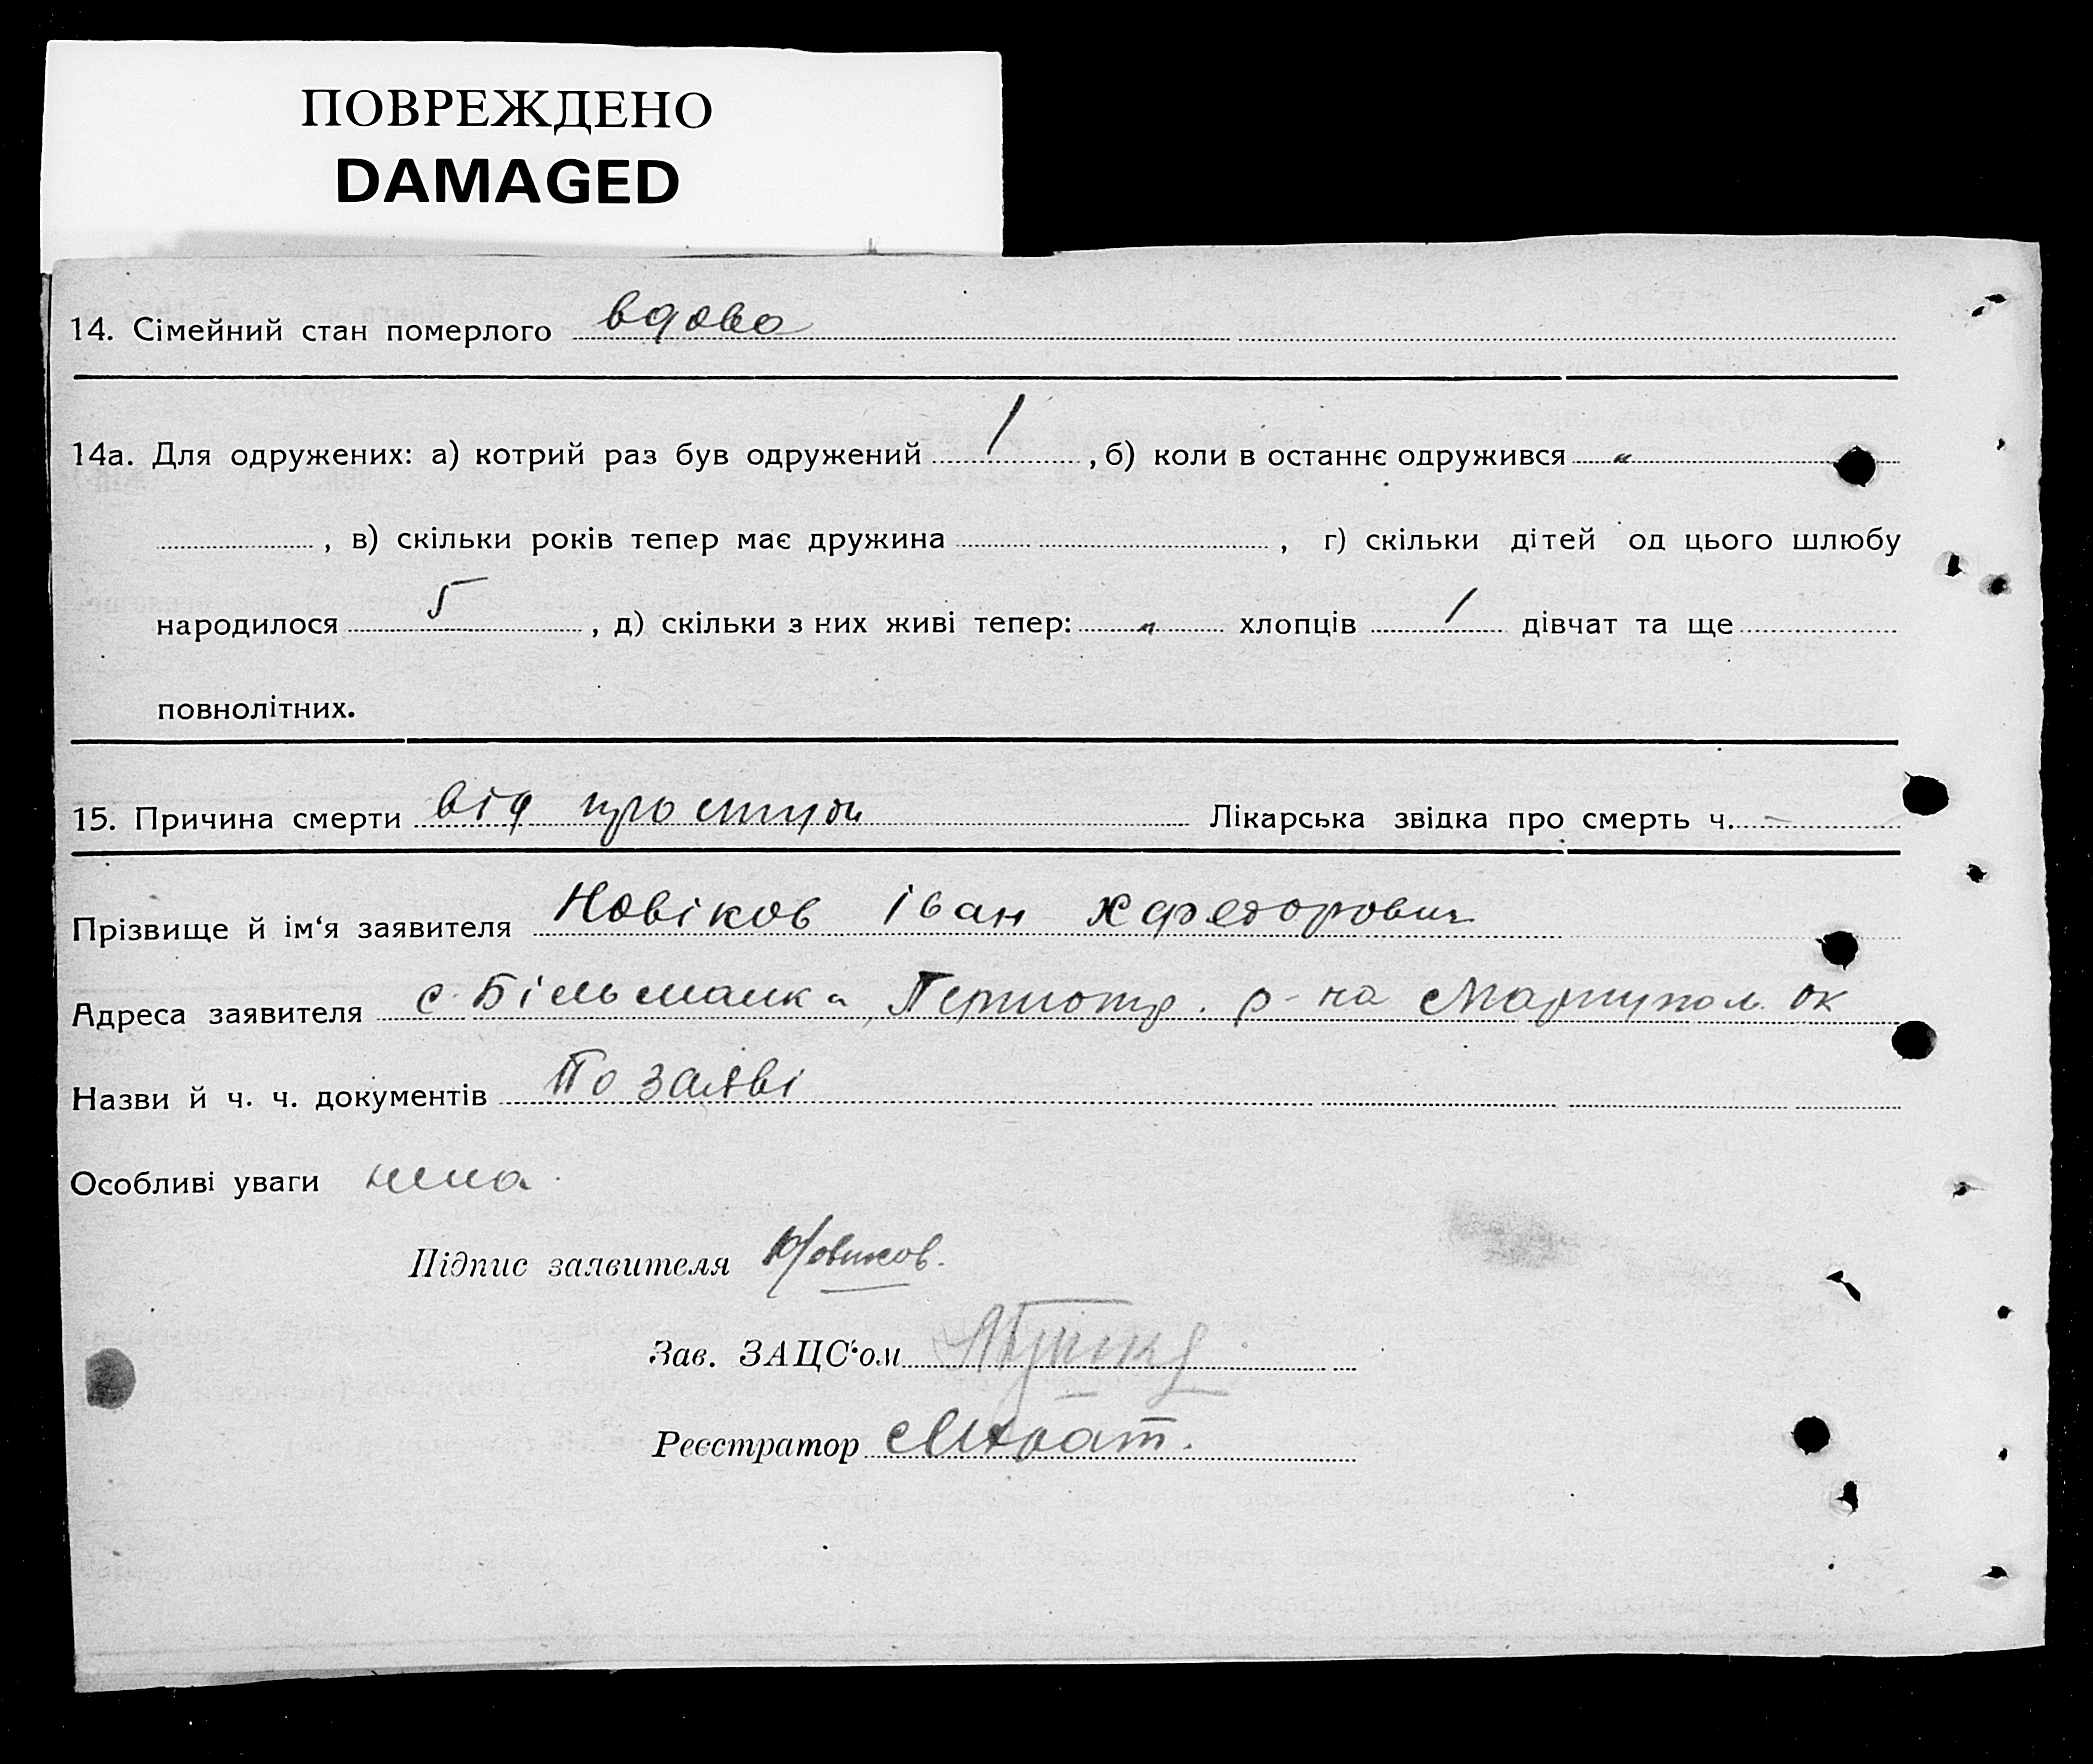 ПОВРЕЖДЕНО
DAMAGED
14. Сімейний стан померлого вдова
14а. Для одружених: а) котрий раз був одружений 1, б) коли в останнє одружився „
, в) скільки років тепер має дружина , г) скільки дітей од цього шлюбу
народилося 5, д) скільки з них живі тепер: „ хлопців 1 дівчат та ще
повнолітних.
15. Причина смерти від простуди Лікарська звідка про смерть ч. -
Прізвище й ім‘я заявителя Новіков Іван Хфедорович
Адреса заявителя с. Більманка, р-на Маріупол. ок
Назви й ч. ч. документів По заяві
Особливі уваги нема.
Підпис заявителя Новиков.
Зав. ЗАЦС‘ом
Реєстратор